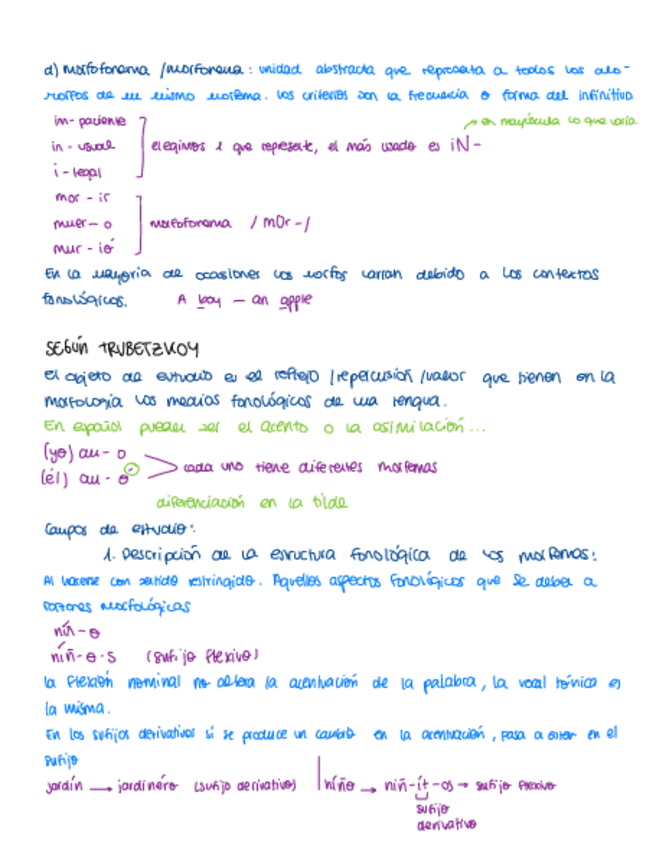 d) morfofonema /morfonema: unidad abstracta que representa a todos los alo-
morfos de un mismo morfema. Los criterios son la frecuencia o forma del infinitivo
→ en mayúscula lo que varía
im- paciente
in - usual
i - legal
elegimos 1 que represente, el más usado es iN-
mor - ir
muer - o
mur - ió
morfofonema /mOr-/
En la mayoría de ocasiones los morfos varían debido a los contextos
fonológicos. A boy — an apple
SEGÚN TRUBETZKOY
El objeto de estudio es el reflejo /repercusión /valor que tienen en la
morfología los medios fonológicos de una lengua.
En español pueden ser el acento o la asimilación...
(yo) am - o
(él) am - ó
cada uno tiene diferentes morfemas
diferenciación en la tilde
Campos de estudio:
1. Descripción de la estructura fonológica de los morfemas:
Al hacerse con sentido restringido. Aquellos aspectos fonológicos que se deben a
razones morfológicas
níñ - o
níñ - o - s (sufijo flexivo)
la flexión nominal no altera la acentuación de la palabra, la vocal tónica es
la misma.
En los sufijos derivativos sí se produce un cambio en la acentuación, pasa a estar en el
sufijo
jardín → jardinéro (sufijo derivativo) | níño → niñ-ít-os → sufijo flexivo
sufijo
derivativo